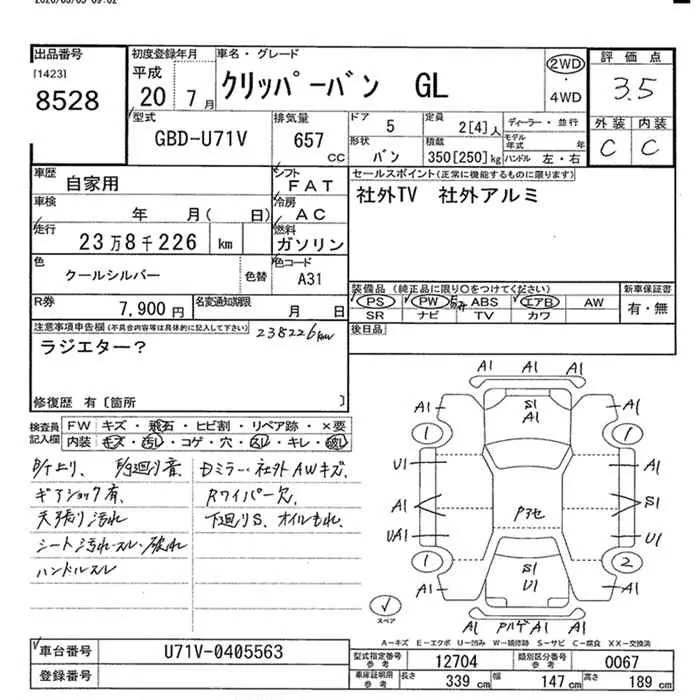 出品番号
[1423]
8528
初度登録年月
平成
20 7月
車名・グレード
クリッパーバン GL
2WD
・
4WD
評価点
3.5
外装 内装
C C
型式
GBD-U71V
排気量
657
cc
ドア 5
形状 バン
定員 2[4]人
積載 350[250]kg
ディーラー・並行
モデル年式 年
ハンドル 左・右
車歴 自家用
シフト FAT
車検 年 月( 日)
冷房 AC
走行 23万8千226 km
燃料 ガソリン
色 クールシルバー 色替
色コード A31
R券 7,900円
名変通知期限 月 日
セールスポイント(正常に機能するものに限ります)
社外TV 社外アルミ
装備品(純正品に限り○をつけてください)
新車保証書
PS PW ABS エアB AW
SR ナビ TV カワ
有・無
後日品
注意事項申告欄(不具合内容等は具体的に記入して下さい)
238226km
ラジエター?
修復歴 有〔箇所 〕
検査員記入欄
FW キズ・飛石・ヒビ割・リペア跡・×要
内装 キズ・汚レ・コゲ・穴・スレ・キレ・破レ
ギアショック有、
天張り汚れ
シート汚れ・スレ・破れ
ハンドルスレ
ミラー・社外AWキズ、
Rワイパー欠、
下廻りS、オイルもれ、
A1 A1 A1
A1 S1 A1 A1
1 1
U1 A1
A1 Pヌセ S1
UA1 U1
1 2
A1 S1 U1 A1
A1 A1
スペア
A－キズ E－エクボ U－凹み W－補修跡 S－サビ C－腐食 XX－交換済
車台番号 U71V-0405563
登録番号
型式指定番号 参考 12704
類別区分番号 参考 0067
車庫証明用 参考 長さ 339 cm 幅 147 cm 高さ 189 cm